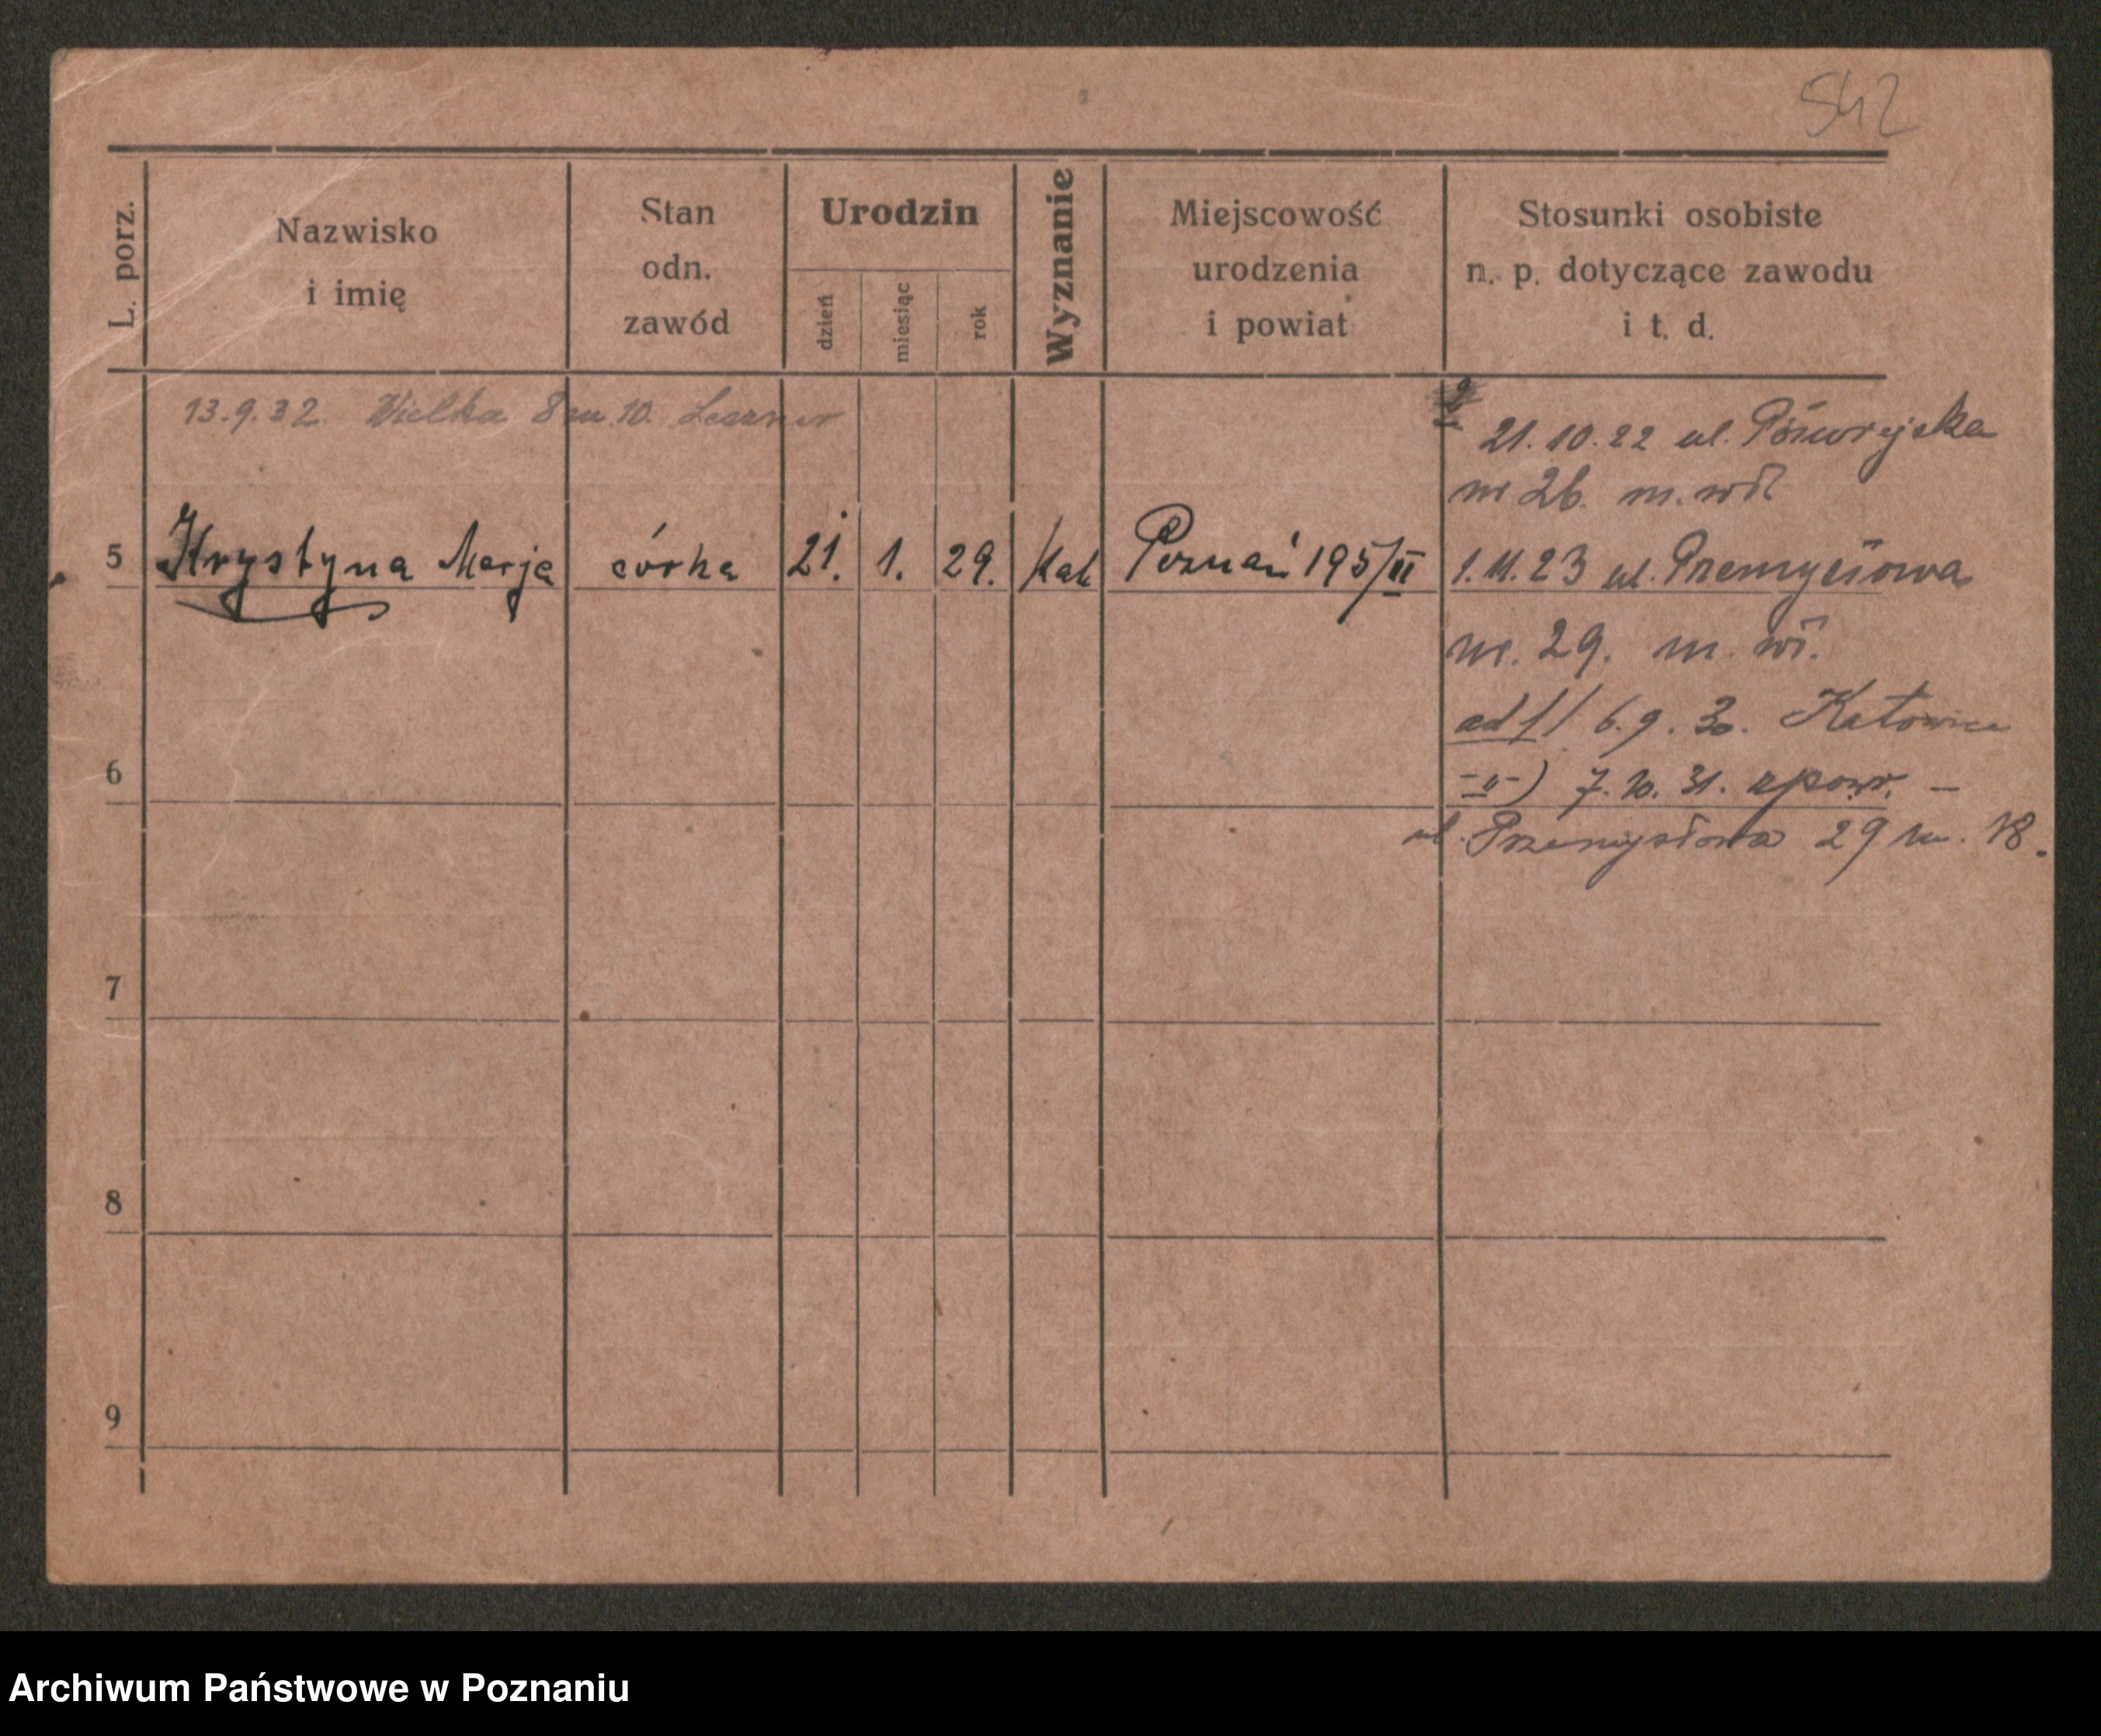 542
L. porz.
Nazwisko
i imię
Stan
odn.
zawód
Urodzin
dzień
miesiąc
rok
Wyznanie
Miejscowość
urodzenia
i powiat
Stosunki osobiste
n. p. dotyczące zawodu
i t. d.
13.9.32. Wielka 8 m. 10.
21.10.22 ul.
nr 26. m.
5 Krystyna Marja córka 21. 1. 29. Kat Poznań 195/II
1.11.23 ul. Przemysłowa
nr. 29. m.
ad 1/ 6.9.30. Katowice
-"-) 7.10.31. zpowr. –
6
ul. Przemysłowa 29 m. 18.
7
8
9
Archiwum Państwowe w Poznaniu